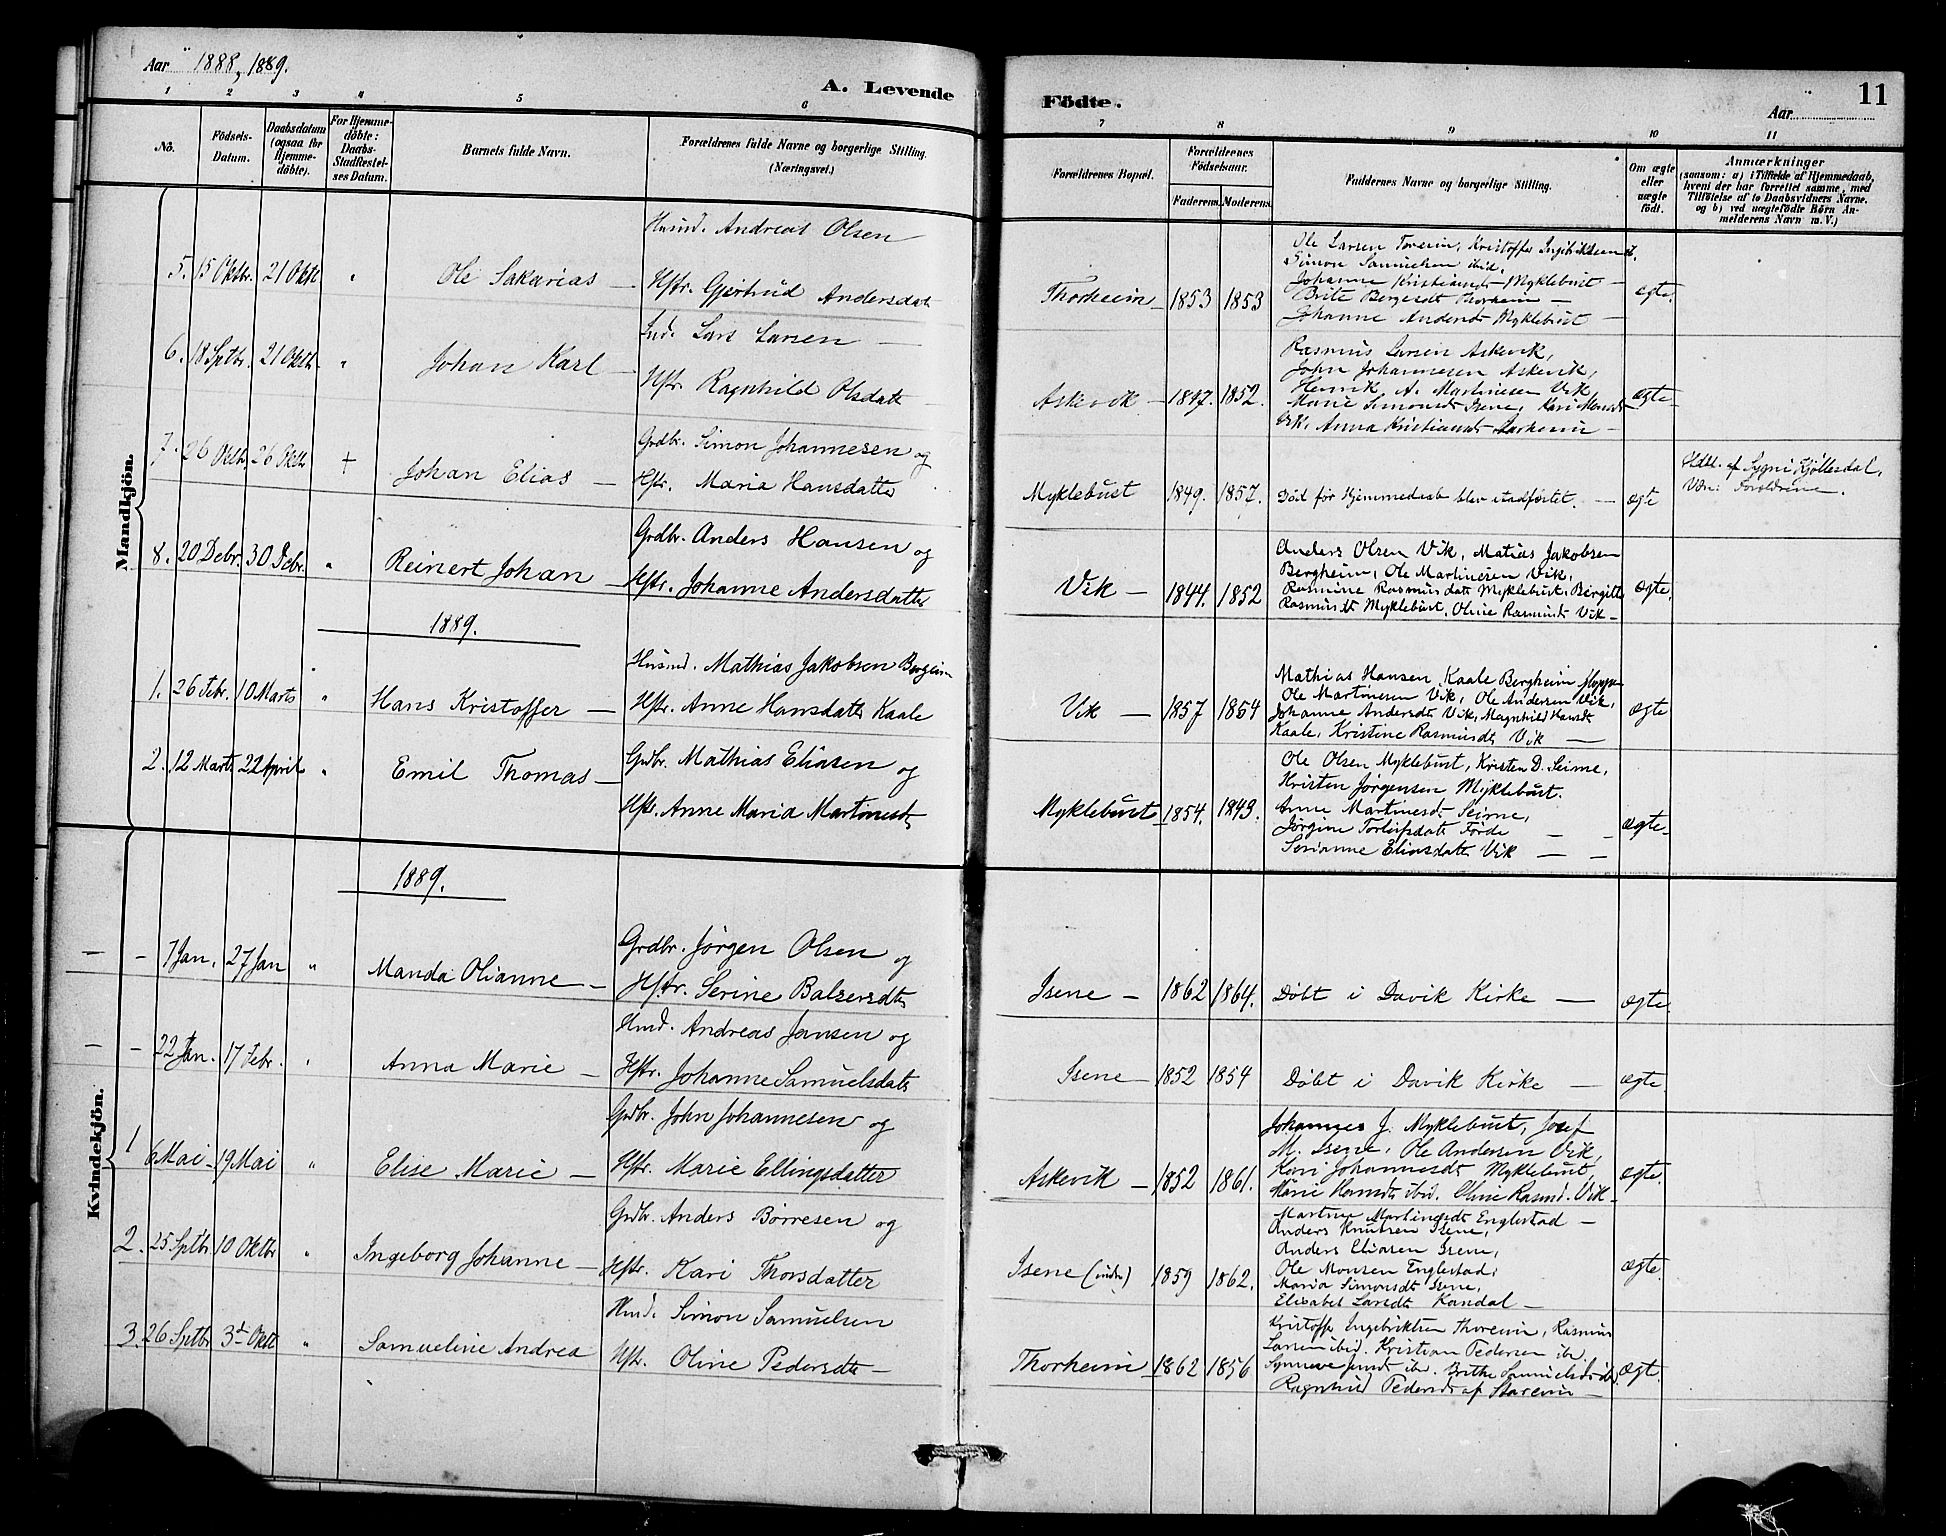 Aar 1888, 1889.
A. Levende Födte.
Aar
11
1 2 3 4 5 6 7 8 9 10 11
No.
Födsels-
Datum.
Daabsdatum
(ogsaa for
Hjemme-
döbte).
For Hjemme-
döbte:
Daabs-
Stadfæstel-
ses Datum.
Barnets fulde Navn.
Forældrenes fulde Navne og borgerlige Stilling.
(Næringsvei.)
Forældrenes Bopæl.
Forældrenes
Födselsaar.
Faderens. Moderens.
Faddernes Navne og borgerlige Stilling.
Om ægte
eller
uægte
født.
Anmærkninger
(saasom: a) i Tilfælde af Hjemmedaab,
hveni der har forrettet samme, med
Tilföielse af to Daabsvidners Navne,
og b) ved uægtefödte Börn An-
melderens Navn m. V.)
Mandkjön.
5. 15 Oktbr. 21 Oktr " Ole Sakarias —
Husmd. Andreas Olsen
Hstr. Gjertrud Andersdatr
Thorheim 1853 1853
Ole Larsen Torheim, Kristoffer Ingebriktsen ib.
Simon Samuelsen ibid.
Johanne Kristiansdt Myklebust —
Brite Bergesdt Thorheim —
Johanne Andersdt Myklebust —
ægte.
6. 18 Sptbr. 21 Oktbr. " Johan Karl —
Ind. Lars Larsen —
Hstr. Ragnhild Olsdatr
Askevik — 1847. 1852.
Rasmus Larsen Askevik,
John Johannesen Askevik,
Henrik A. Martinesen Vik,
Marie Simonsdt Isene, Kari Monsdt
Vik, Anna Kristiansdt
ægte
7. 26 Oktbr 26 Oktbr + Johan Elias —
Grdbr. Simon Johannesen og
Hstr. Maria Hansdatter
Myklebust 1849. 1857.
Død før Hjemmedaab blev stadfæstet. —
ægte
af Sygni Kjøllesdal,
Forældrene.
8. 20 Debr. 30 Debr. " Reinert Johan —
Grdbr. Anders Hansen og
Hstr. Johanne Andersdatter
Vik — 1844. 1852
Anders Olsen Vik, Matias Jakobsen
Bergheim, Ole Martinesen Vik,
Rasmine Rasmusdatr Myklebust, Birgitte
Rasmusdt Myklebust, Oline Rasmusdt Vik —
ægte.
1889.
1. 26 Febr. 10 Marts " Hans Kristoffer —
Husmd. Mathias Jakobsen Bergeim
Hstr. Anne Hansdatter Kaale
Vik — 1857 1854
Mathias Hansen Kaale Bergheim
Ole Martinesen Vik, Ole Andersen Vik,
Johanne Andersdt Vik, Magnhild Hansdt
Kaale, Kristine Rasmusdt Vik —
ægte
2. 12 Marts 22 April " Emil Thomas —
Grdbr. Mathias Eliasen og
Hstr. Anne Maria Martinesdt
Myklebust 1854. 1843.
Ole Olsen Myklebust, Kristen D. Seime,
Kristen Jørgensen Myklebust.
Anne Martinesdt Seime,
Jørgine Torleifsdatr Førde — —
Serianne Eliasdatter Vik — —
ægte
Kvindekjön.
1889.
— — 7 Jan. 27 Jan " Manda Olianne —
Grdbr. Jørgen Olsen og
Hstr. Serine Balsersdtr
Isene — 1862 1864.
Døbt i Davik Kirke —
ægte.
— — 22 Jan. 17 Febr. " Anna Marie —
Hmd. Andreas Jansen og
Hstr. Johanne Samuelsdatr
Isene — 1852 1854
Døbt i Davik Kirke —
ægte
1 6 Mai 19 Mai " Elise Marie —
Grdbr. John Johannesen og
Hstr. Marie Ellingsdatter
Askevik — 1852 1861.
Johannes J. Myklebust, Josef
M. Isene, Ole Andersen Vik,
Kari Johannesdt Myklebust,
Marie Hansdt ibid. Oline Rasmd. Vik —
ægte.
2. 25 Sptbr 10 Oktbr " Ingeborg Johanne —
Grdbr. Anders Børresen og
Hstr. Kari Thorsdatter
Isene (indre) 1859 1862.
Martine Martinesdt Englestad —
Anders Knutsen Isene,
Anders Eliasen Isene,
Ole Monsen Englestad,
Maria Simonsdt Isene,
Elisabet Larsdt Kandal —
ægte.
3. 26 Sptbr 3d Oktr " Samueline Andrea
Hmd. Simon Samuelsen
Hstr. Oline Pedersdtr —
Thorheim 1862 1856
Kristoffer Ingebriktsen Thoreim, Rasmus
Larsen ibid. Kristian Pedersen ib.
Synneve ib. Brithe Samuelsdt ibd.
Ragnhild Pedersdt af Staveim —
ægt.